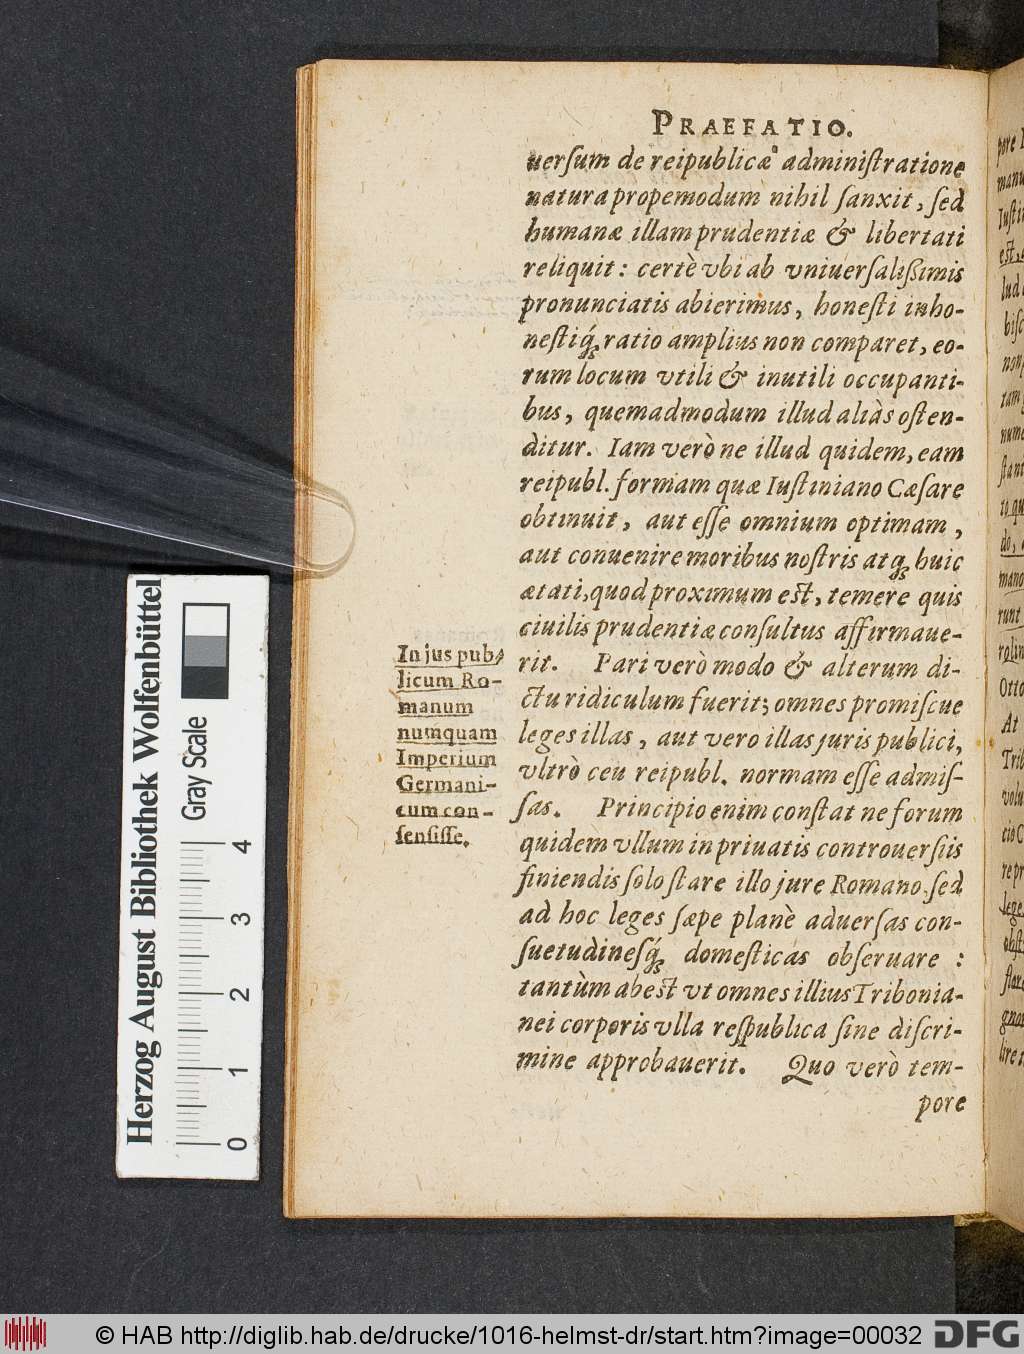 PRAEFATIO.
uersum de reipublicæ administratione
natura propemodum nihil sanxit, sed
humanæ illam prudentiæ & libertati
reliquit: certè vbi ab vniuersalißimis
pronunciatis abierimus, honesti inho-
nestiq́; ratio amplius non comparet, eo-
rum locum vtili & inutili occupanti-
bus, quemadmodum illud aliàs osten-
ditur. Iam verò ne illud quidem, eam
reipubl. formam quæ Iustiniano Cæsare
obtinuit, aut esse omnium optimam,
aut conuenire moribus nostris atq; huic
ætati, quod proximum est, temere quis
ciuilis prudentiæ consultus affirmaue-
rit. Pari verò modo & alterum di-
ctu ridiculum fuerit; omnes promiscue
leges illas, aut vero illas juris publici,
vltrò ceu reipubl. normam esse admis-
sas. Principio enim constat ne forum
quidem vllum in priuatis controuersiis
finiendis solo stare illo jure Romano, sed
ad hoc leges sæpe planè aduersas con-
suetudinesq́; domesticas obseruare:
tantùm abest vt omnes illius Tribonia-
nei corporis vlla respublica sine discri-
mine approbauerit. Quo verò tem-
pore
In jus pub-
licum Ro-
manum
numquam
Imperium
Germani-
cum con-
sensisse.
Herzog August Bibliothek Wolfenbüttel
Gray Scale
0 1 2 3 4
© HAB http://diglib.hab.de/drucke/1016-helmst-dr/start.htm?image=00032
DFG